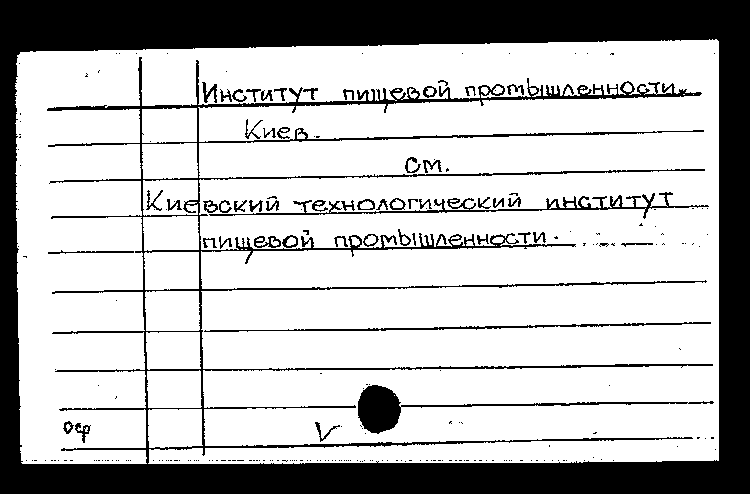 Институт пищевой промышленности.
Киев.
см.
Киевский технологический институт
пищевой промышленности.
оср
V